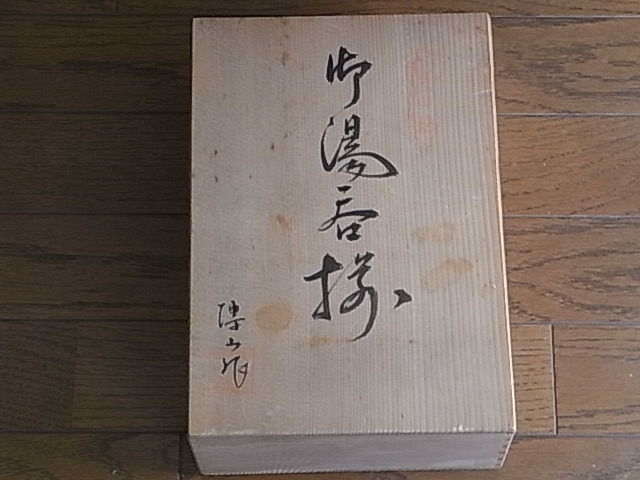 御湯呑揃
陶山作